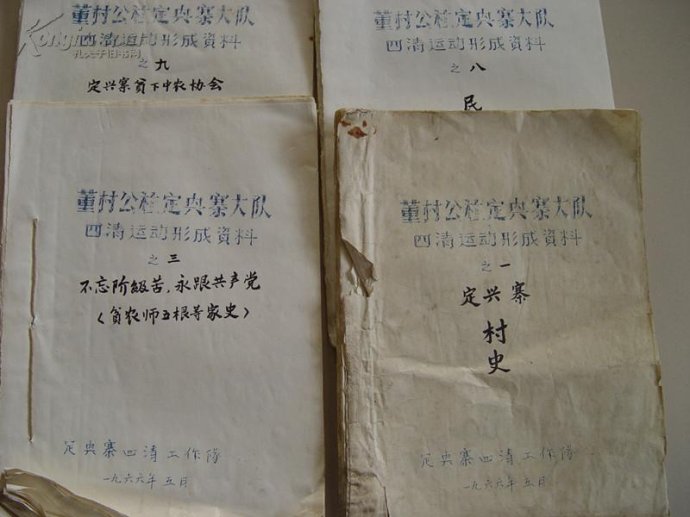 董村公社定兴寨大队
四清运动形成資料
之九
定兴寨贫下中农协会
董村公社定兴寨大队
四清运动形成資料
之八
民
董村公社定兴寨大队
四清运动形成資料
之三
不忘阶級苦，永跟共产党
（贫农师五根等家史）
定兴寨四清工作隊
一九六六年五月
董村公社定兴寨大队
四清运动形成資料
之一
定兴寨
村
史
定兴寨四清工作隊
一九六六年五月
孔夫子旧书网